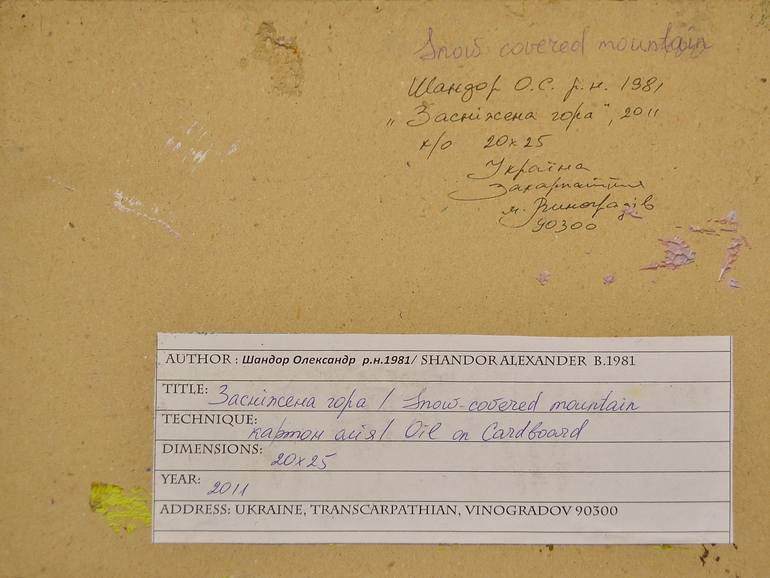 Snow covered mountain
Шандор О.С. р.н. 1981
„Засніжена гора", 2011
к/о 20x25
Україна
Закарпаття
м. Виноградів
90300
AUTHOR : Шандор Олександр р.н.1981/ SHANDOR ALEXANDER B.1981
TITLE: Засніжена гора / Snow-covered mountain
TECHNIQUE: картон олія/ Oil on Cardboard
DIMENSIONS: 20x25
YEAR: 2011
ADDRESS: UKRAINE, TRANSCARPATHIAN, VINOGRADOV 90300